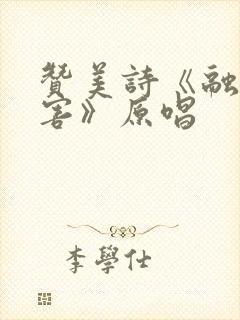 赞美詩《融
害》原唱
李學仕